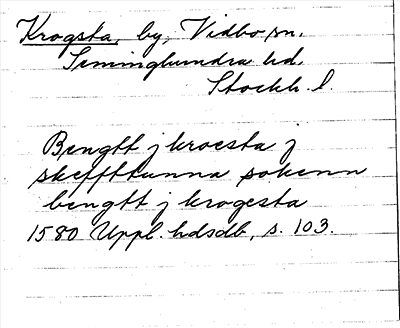 Krogsta, by, Vidbo sn.
Seminghundra hd.
Stockh. l.
Bengtt j kroesta j
skefftunna sokenn
bengtt j krogesta
1580 Uppl. hdsdb, s. 103.